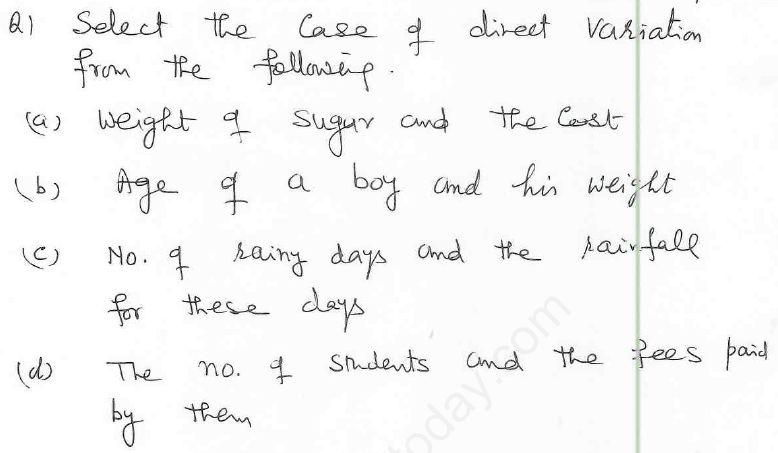 Q1 Select the Case of direct Variation
from the following.
(a) Weight of Sugur and the Cost
(b) Age of a boy and his weight
(c) No. of rainy days and the rainfall
for these days
(d) The no. of students and the fees paid
by them
today.com